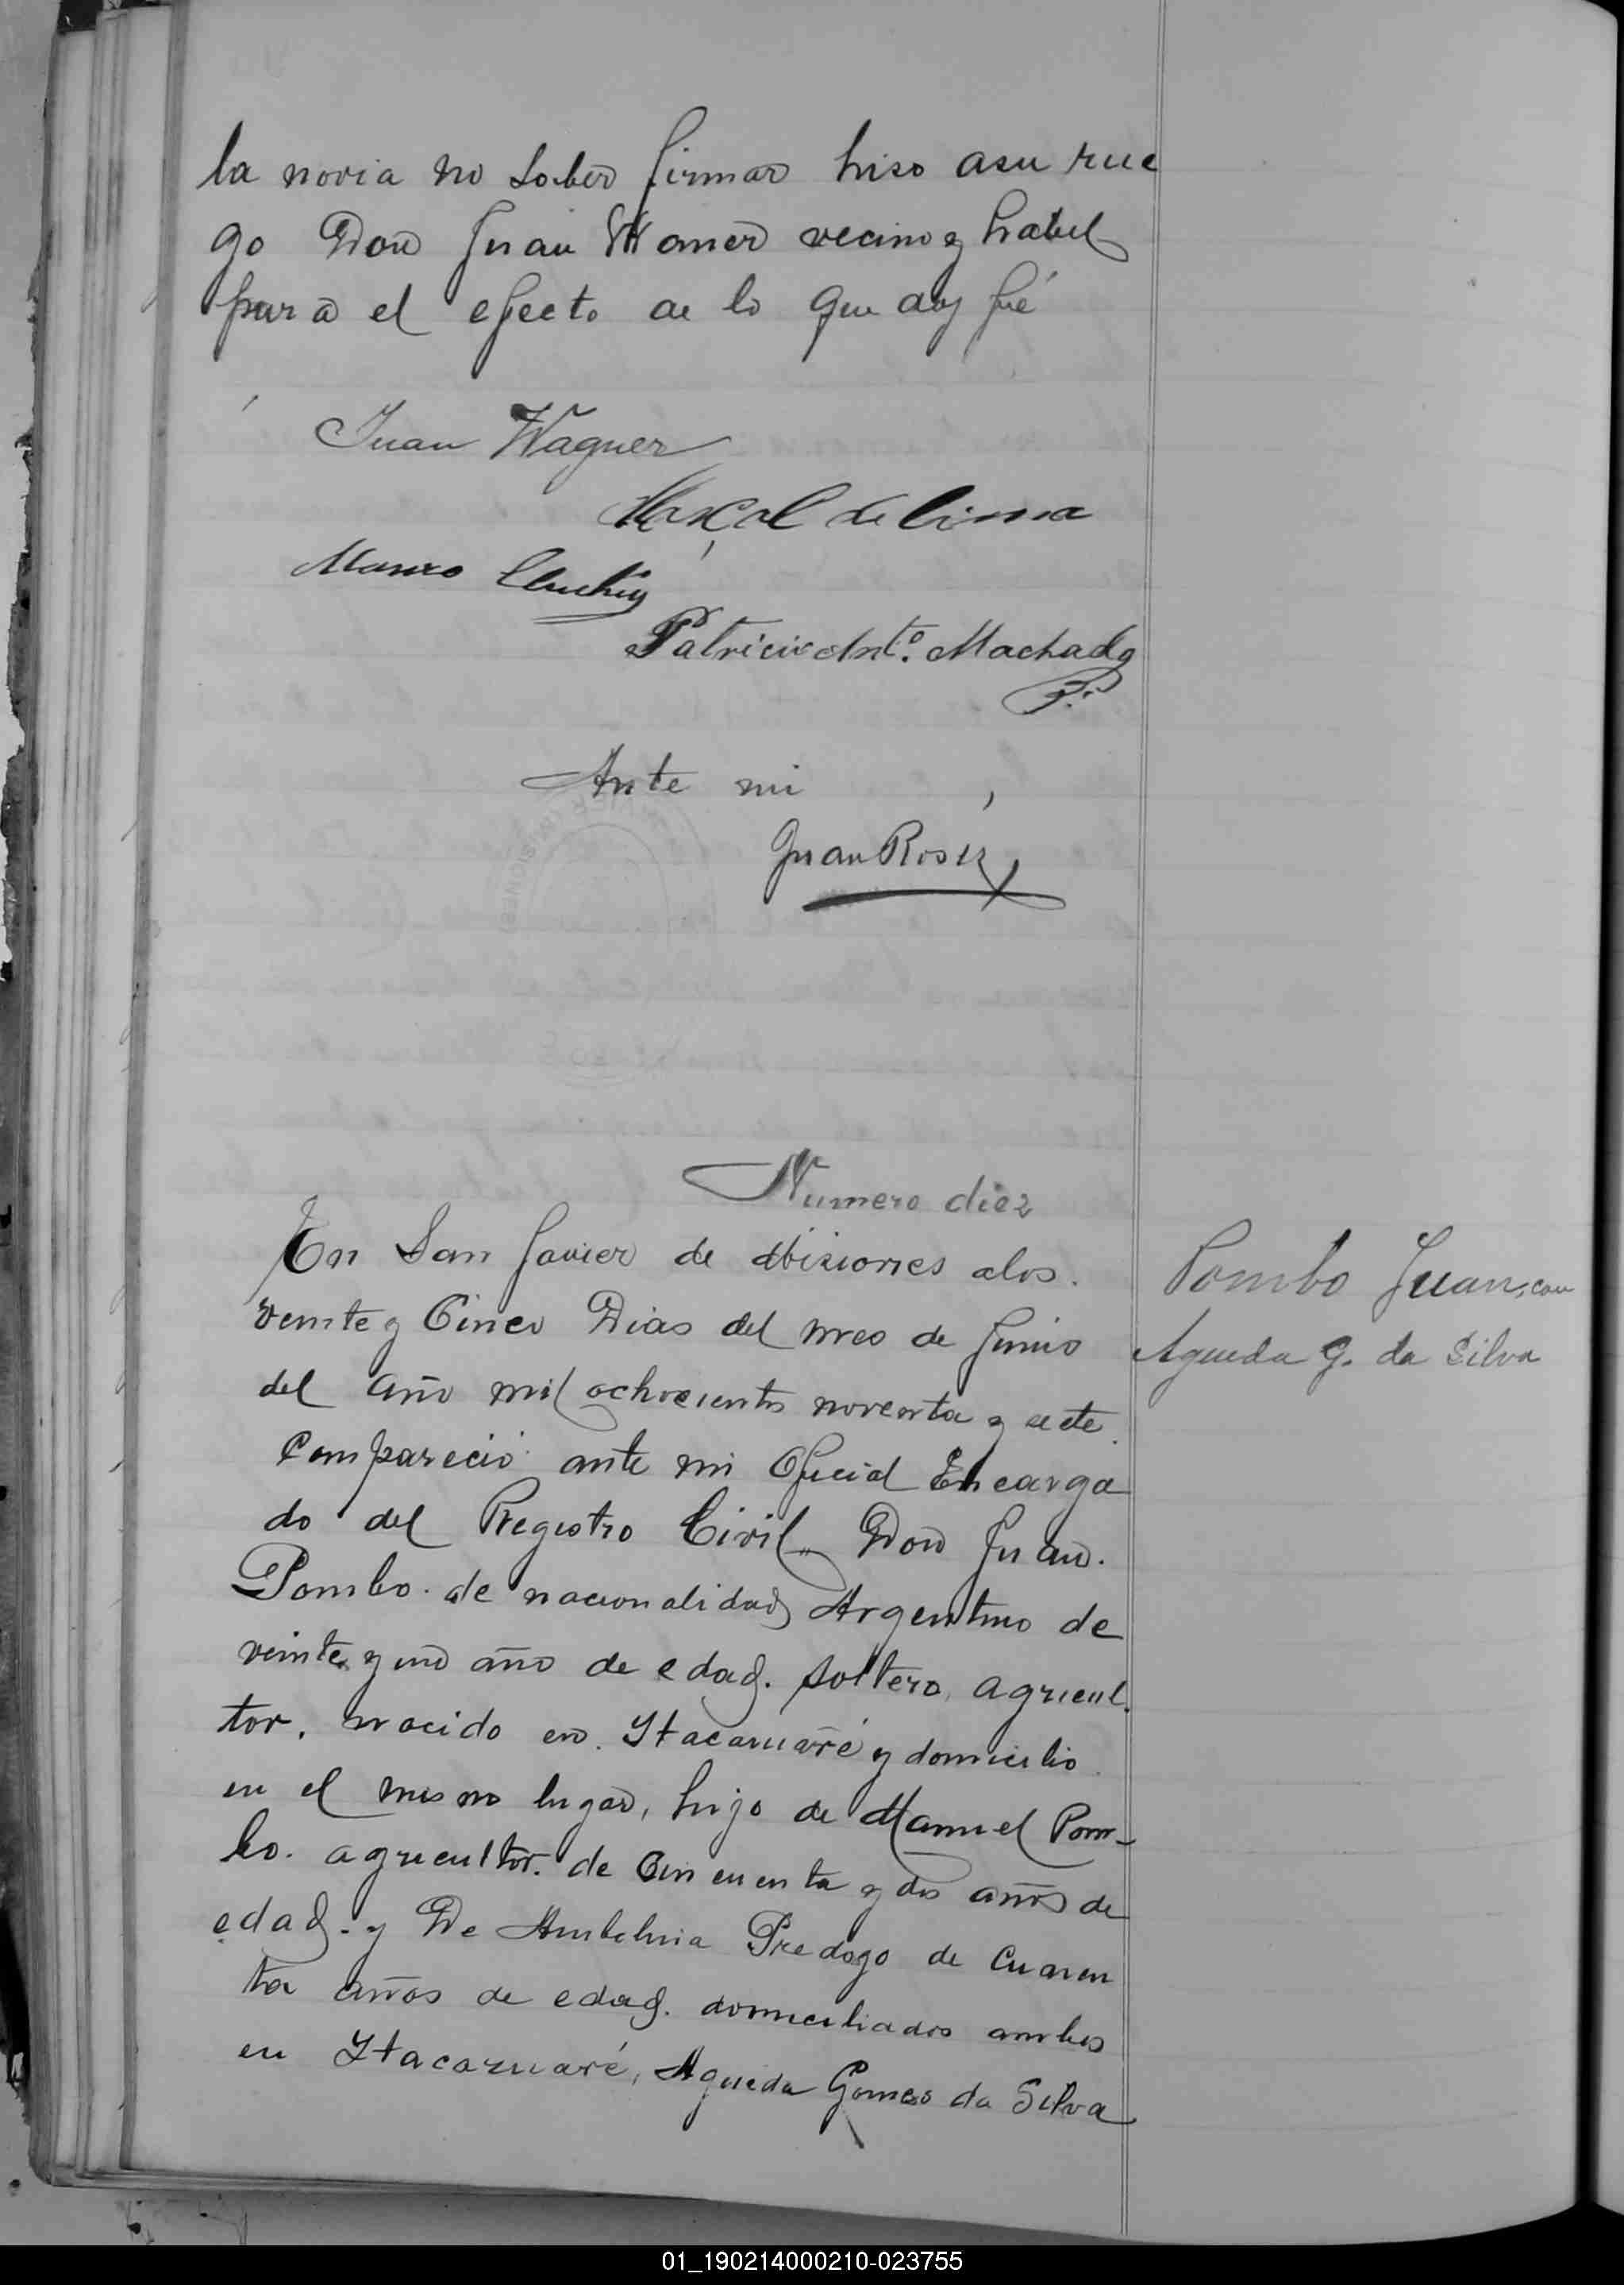 la novia no saber firmar hiso asu rue
go Don Juan Waner vecino y habil
para el efecto de lo que doy fé
Juan Wagner
Marçal de Lima
Mauro
Patricio Ant.º Machado
Ante mi
Juan Rosés
Numero diez
En San Javier de Misiones alos.
veinte y Cinco Dias del mes de Junio
del año mil ochocientos noventa y siete.
Compareció ante mi Oficial Encarga
do del Registro Civil Don Juan.
Pombo. de nacionalidad Argentino de
veinte y uno año de edad. soltero, agricul.
tor. nacido en. Ytacaruaré y domicilio
en el mismo lugar, hijo de Manuel Pom-
bo. agricultor. de Cincuenta y dos años de
edad. y De Ambelina Predogo de Cuaren
ta años de edad. domiciliados ambos
en Ytacaruaré, Agueda Gomes da Silva
Pombo Juan, con
Agueda G. da Silva
01_190214000210-023755